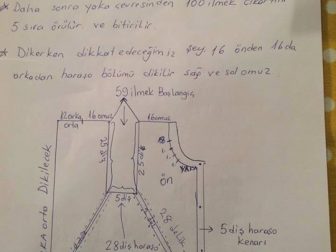 Daha sonra yaka çevresinden 100 ilmek çıkarılır
5 sıra örülür ve bitirilir
* Dikerken dikkat edeceğimiz şey 16 önden 16 da
arkadan haraşo bölümü dikilir sağ ve solomuz
59 ilmek Başlangıç
orta
16 omuz
16 omuz
25 diş
5 diş
ön
28 diş haraşo
5 diş haraşo
kenarı
orta Dikilecek